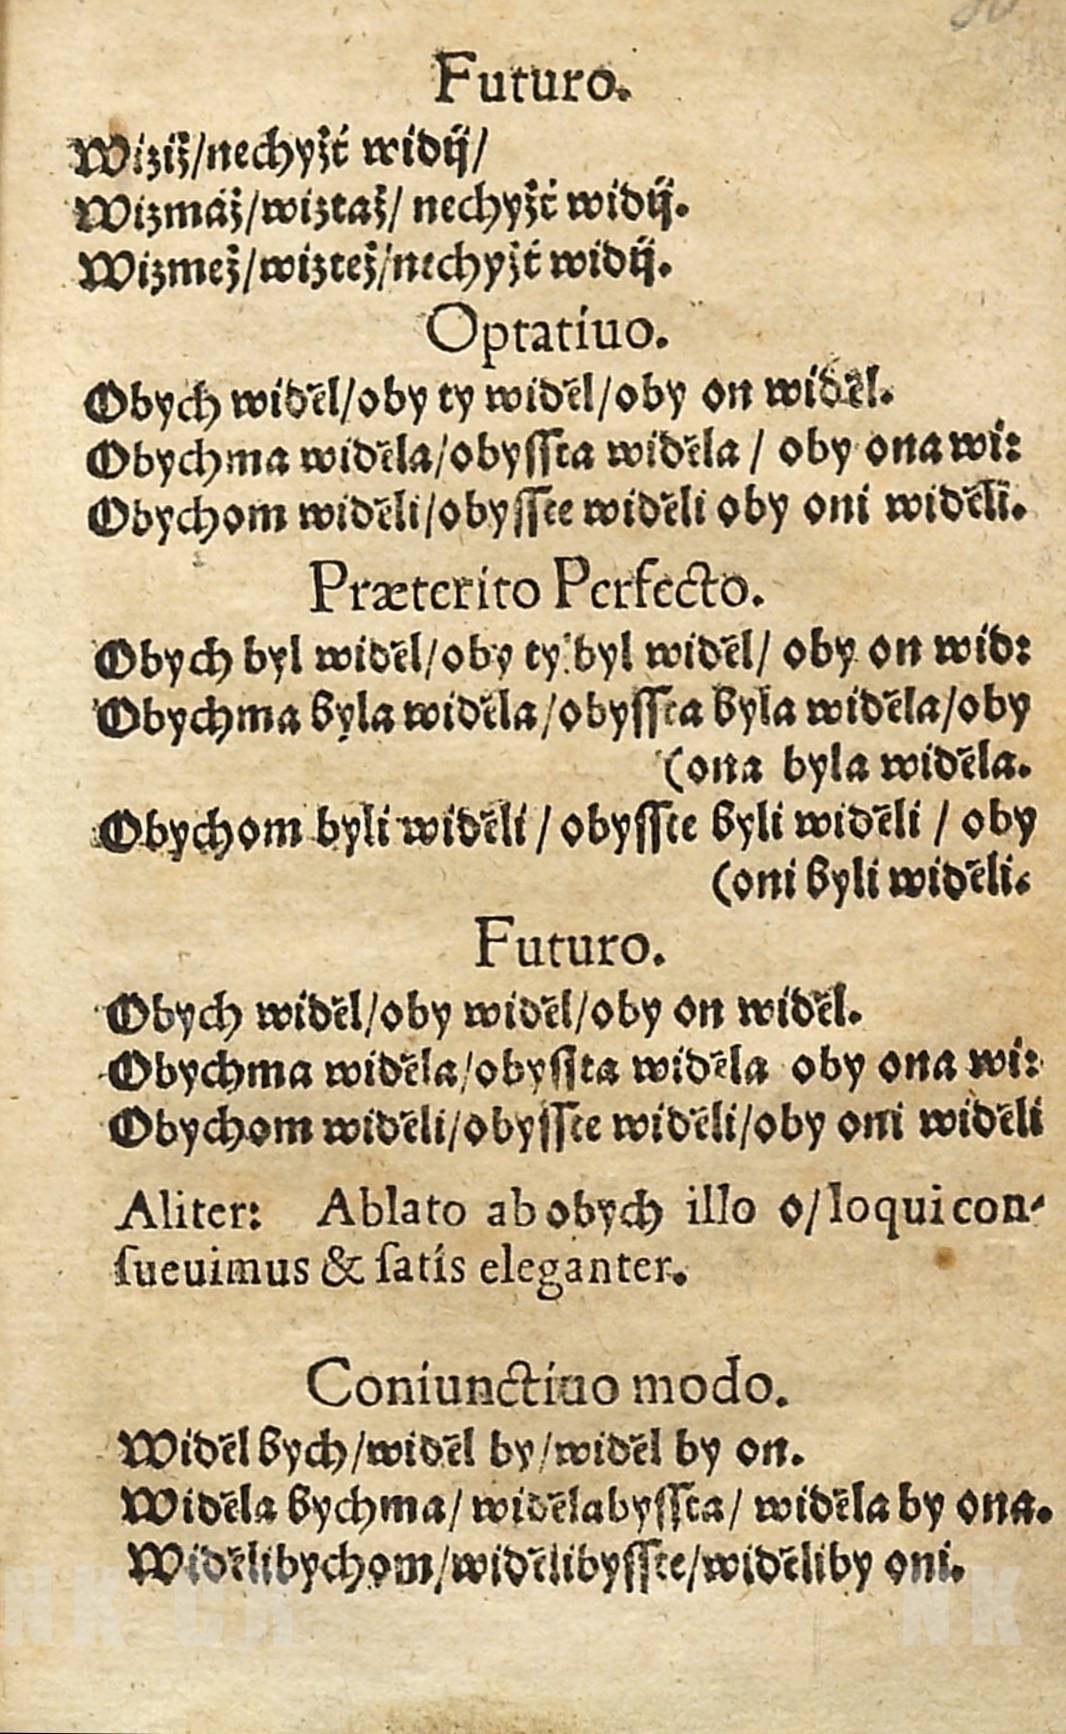 Futuro.
Wiziž/nechyžť widij/
Wizmáž/wiztaž/ nechyžť widij.
Wizmež/wiztež/nechyžť widij.
Optatiuo.
Obych widěl/oby ty widěl/oby on widěl.
Obychma widěla/obyſſta widěla / oby ona wi:
Obychom widěli/obyſſte widěli oby oni widěli.
Præterito Perfecto.
Obych byl widěl/oby ty byl widěl/ oby on wid:
Obychma byla widěla/obyſſta byla widěla/oby
(ona byla widěla.
Obychom byli widěli / obyſſte byli widěli / oby
(oni byli widěli.
Futuro.
Obych widěl/oby widěl/oby on widěl.
Obychma widěla/obyſſta widěla oby ona wi:
Obychom widěli/obyſſte widěli/oby oni widěli
Aliter: Ablato ab obych illo o/ loqui con-
ſueuimus & ſatis eleganter.
Coniunctiuo modo.
Widěl bych/widěl by/widěl by on.
Widěla bychma/ widělabyſſta/ widěla by ona.
Widělibychom/widělibyſſte/widěliby oni.
NK ČR NK